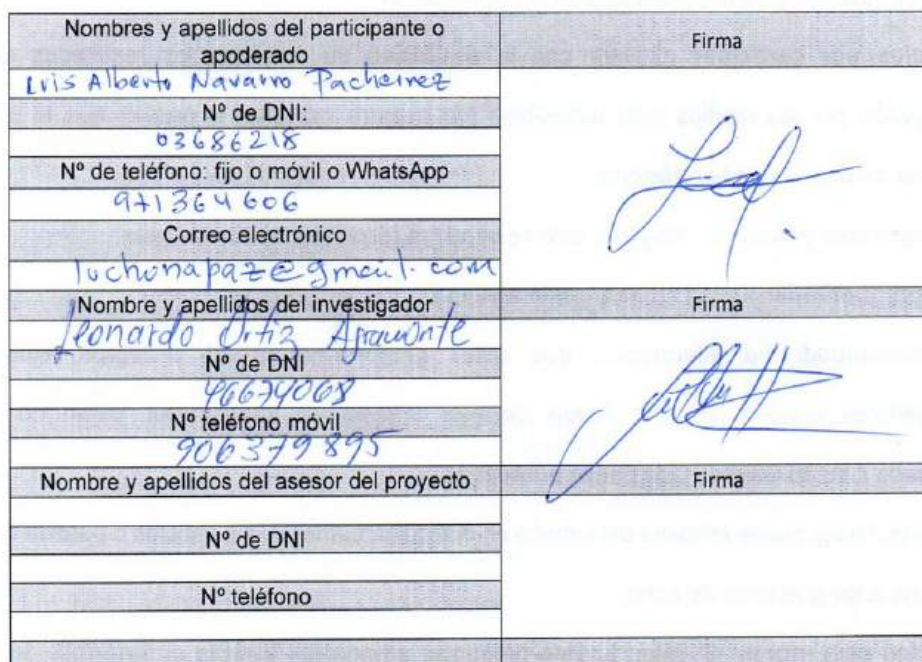 Nombres y apellidos del participante o
apoderado
Firma
Luis Alberto Navarro Pacherrez
Nº de DNI:
03686218
Nº de teléfono: fijo o móvil o WhatsApp
971364606
Correo electrónico
luchonapaz@gmail.com
Nombre y apellidos del investigador
Firma
Leonardo Ortiz
Nº de DNI
46674068
Nº teléfono móvil
906379895
Nombre y apellidos del asesor del proyecto
Firma
Nº de DNI
Nº teléfono